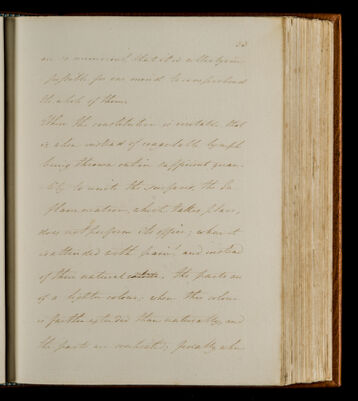 53
are so numerous that it is utterly im-
possible for one mind to comprehend
the whole of them.
When the constitution is irritable that
is when instead of coagulable lymph
being thrown out in sufficient quan-
-tity to unite the surfaces, the In
flammation, which takes place,
does not perform its office; when it
is attended with pain, and instead
of their natural the parts are
of a lighter colour; when this colour
is farther extended than naturally, and
the parts are ; when